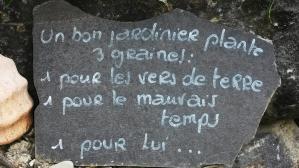 Un bon jardinier plante
3 graines :
1 pour les vers de terre
1 pour le mauvais
temps
1 pour lui ...